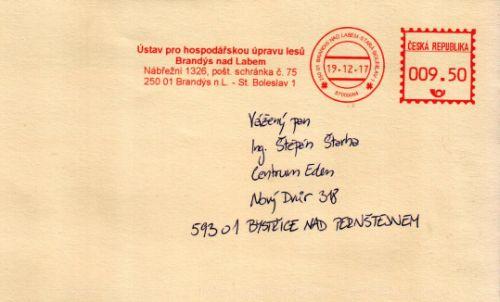 Ústav pro hospodářskou úpravu lesů
Brandýs nad Labem
Nábřežní 1326, pošt. schránka č. 75
250 01 Brandýs n L. - St. Boleslav 1
250 01 BRANDÝS NAD LABEM-STARÁ BOLESLAV 1
19.-12.-17
ČESKÁ REPUBLIKA
009.50
Vážený pan
Ing. Štěpán Štarha
Centrum Eden
Nový Dvůr 318
593 01 BYSTŘICE NAD PERNŠTEJNEM